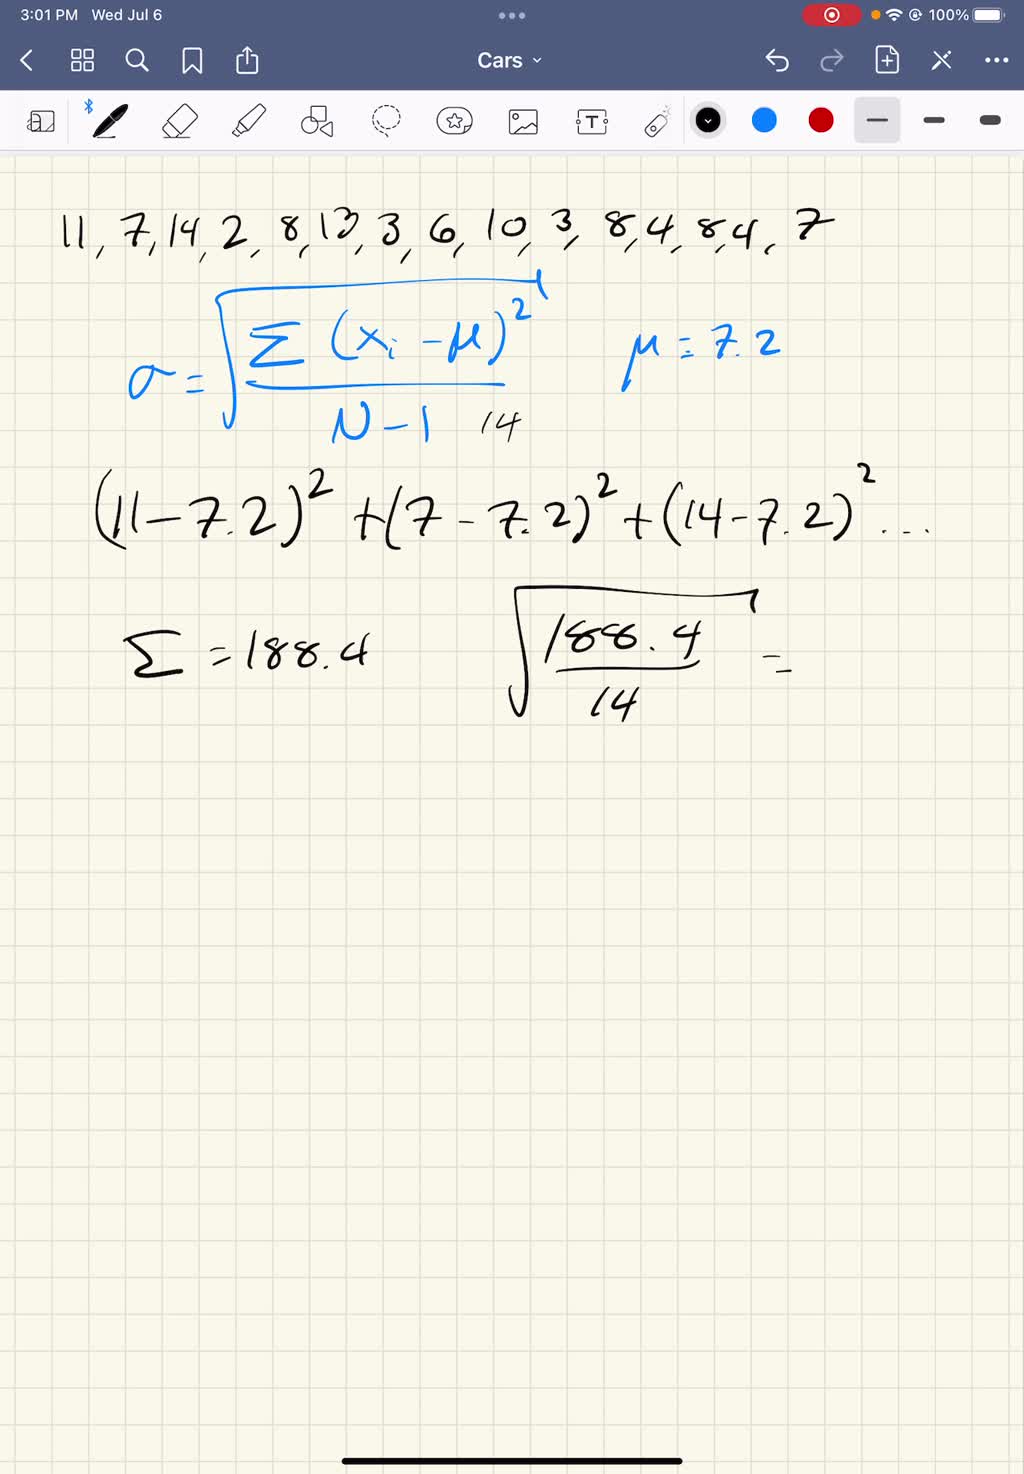 3:01 PM Wed Jul 6 100%
Cars
T
11, 7, 14, 2, 8, 13, 3, 6, 10, 3, 8, 4, 8, 4, 7
σ = √(Σ(xᵢ - μ)² / N - 1) μ = 7.2
14
(11 - 7.2)² + (7 - 7.2)² + (14 - 7.2)² ...
Σ = 188.4 √(188.4 / 14) =